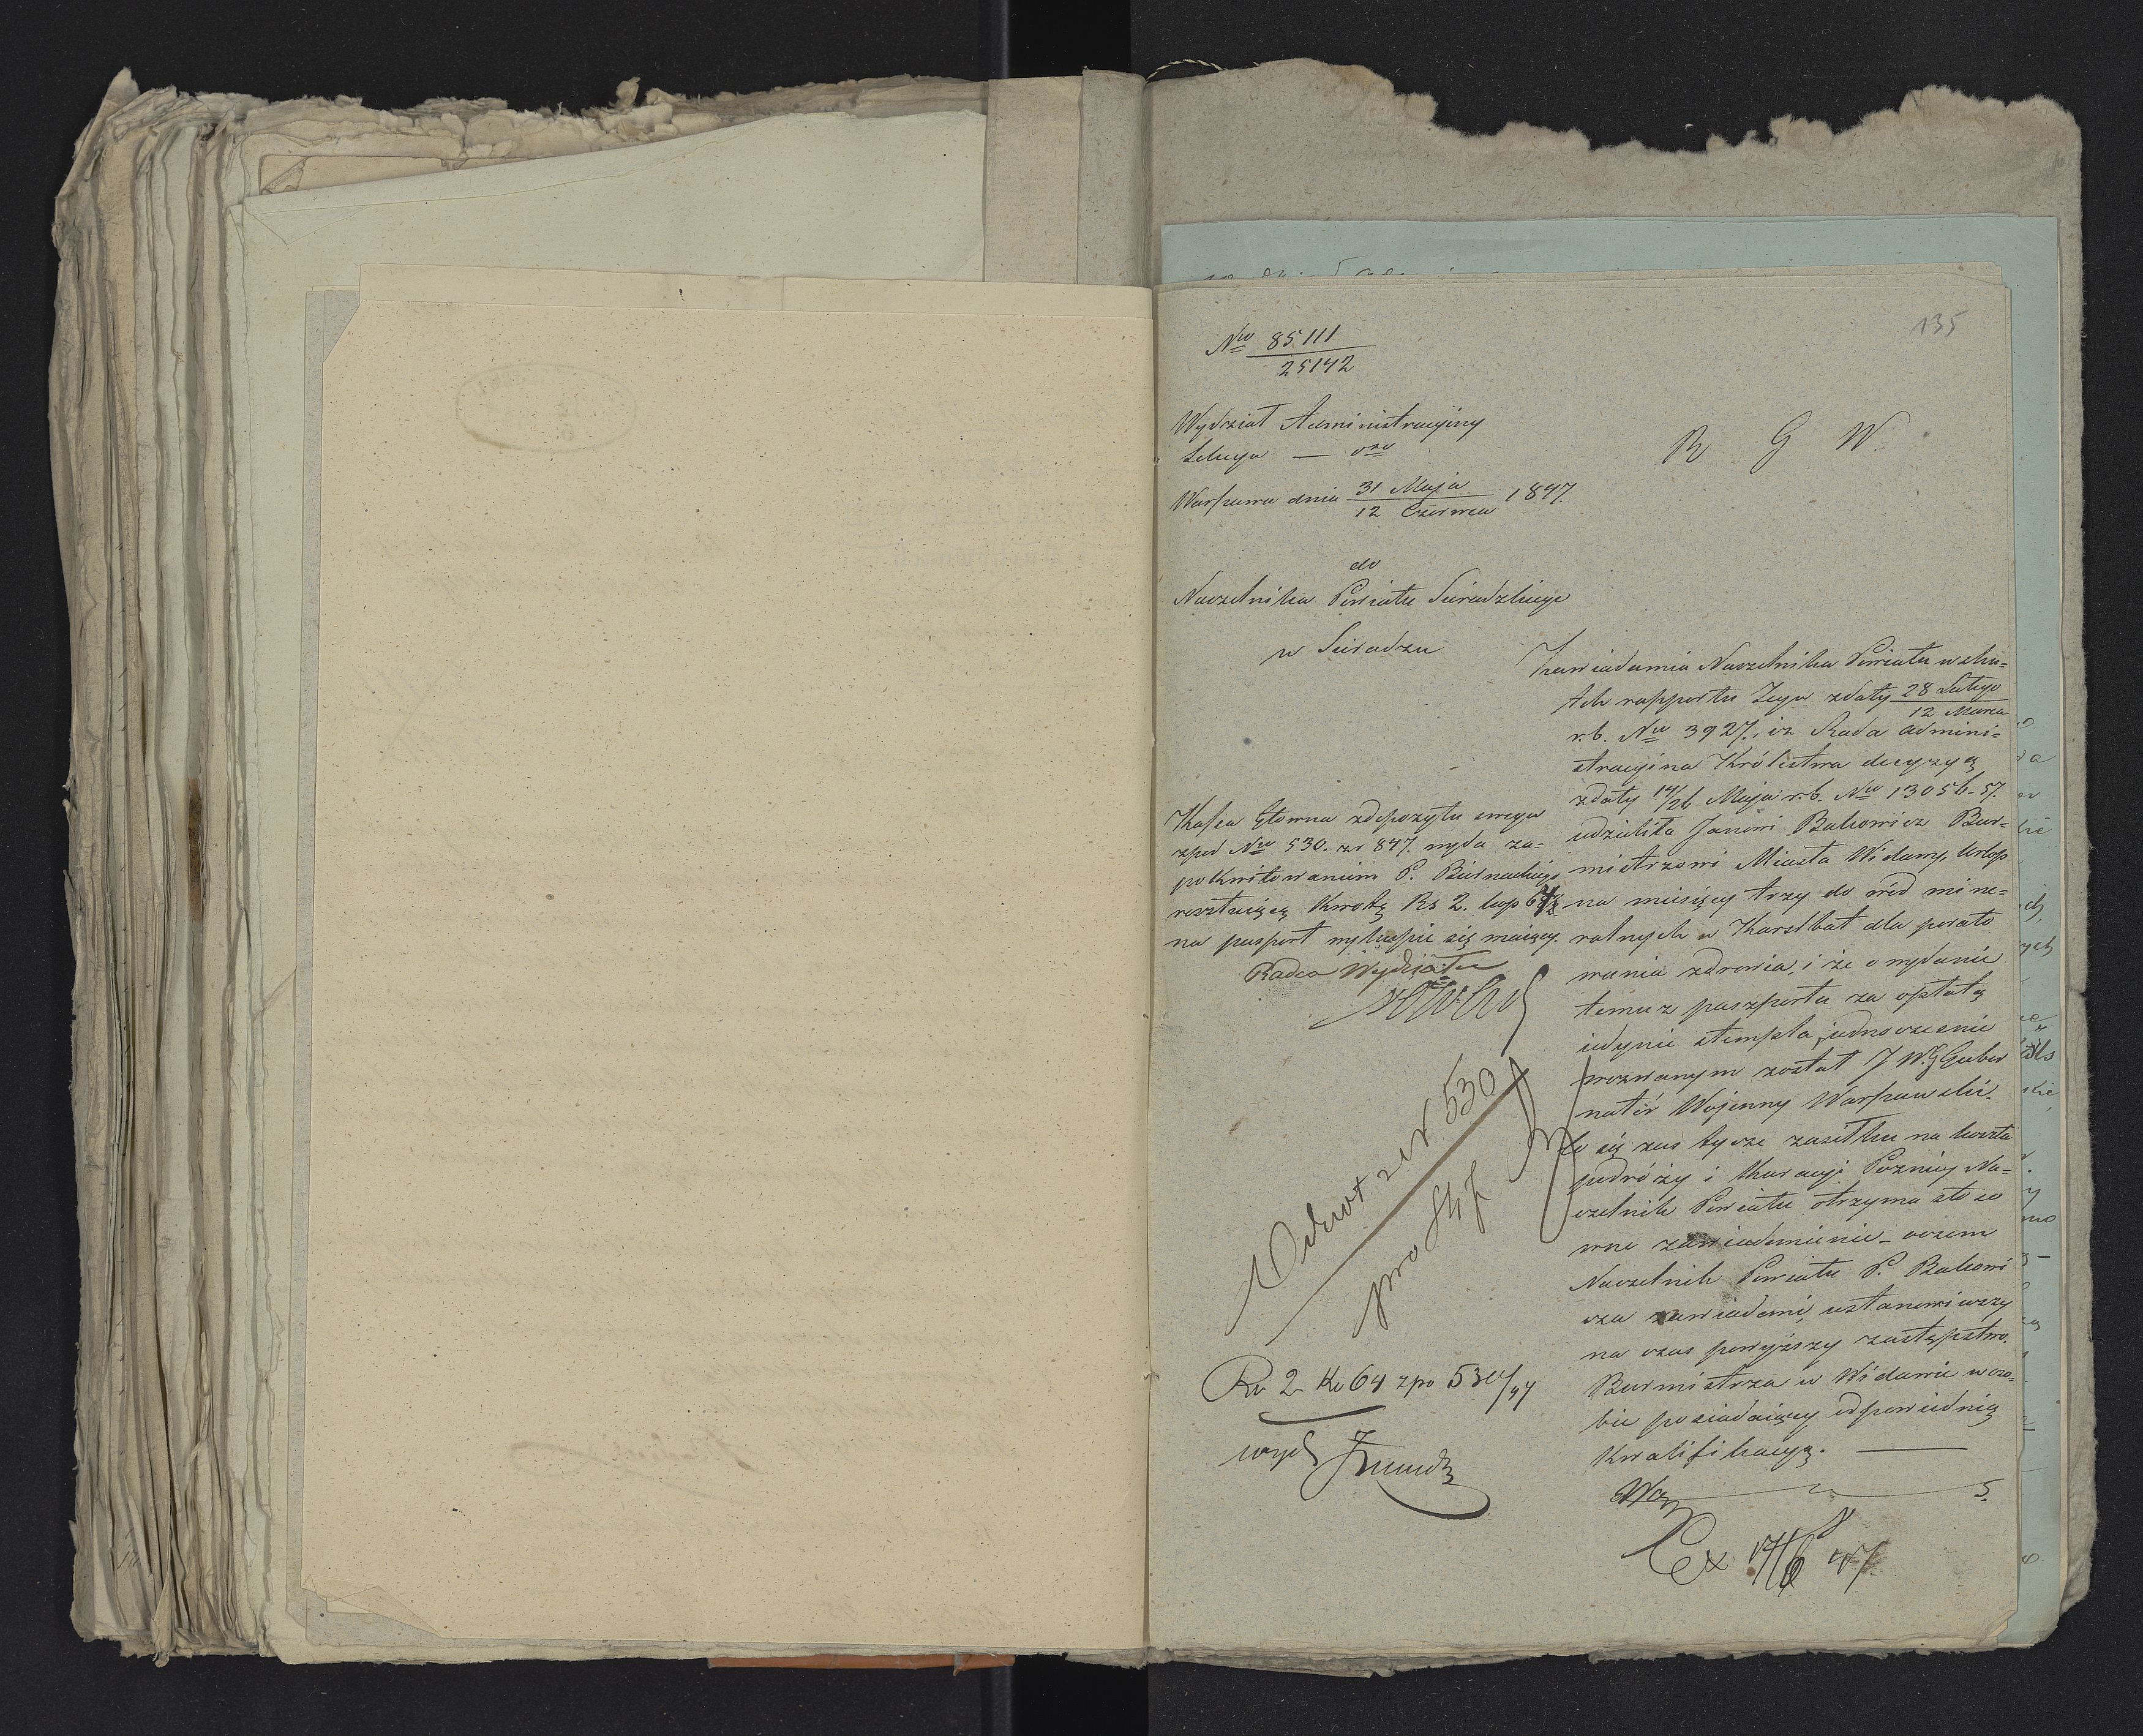 135
Nro 85111
25142
Wydział Administracyiny
Sekcya —
R G W.
Warszawa dnia 31 Maja
12 Czerwca 1847.
do
Naczelnika Powiatu Sieradzkiego
w Sieradzu
Zawiadamia Naczelnika Powiatu w sku=
tek rapportu Jego z daty 28 Lutego
12 Marca
r. b. Nro 3927, iż Rada Admini=
stracyina Królestwa decyzyą
z daty 14/26 Maja r. b. Nro 13056-57.
udzieliła Janowi Bakowicz Bur=
mistrzowi Miasta Widawy, Urlop
na miesięcy trzy do wód mine=
ralnych w Karslbat dla porato
wania zdrowia, i że o wydanie
temuż paszportu za opłatą
iedynie stempla, iednocześnie
wezwanym został J W. G Guber
nator Wojenny Warszawski.
Co się zaś tycze zasiłku na koszta
podróży i kuracyi Pozniey Na=
czelnik Powiatu otrzyma stoso
wne zawiadomienie – oczem
Naczelnik Powiatu P. Bakowi
cza zawiadomi, ustanowiwszy
na czas powyższy zastępstwo
Burmistrza w Widawie w oso=
bie posiadaiącey odpowiednią
Kwalifikacyą. —
Kassa Główna z depozytu swego
z pod Nro 530. z r 847. wyda za=
pokwitowaniem P. Biernackiego
resztuiącą kwotę Rs 2. kop 64
na pasport wykupić się maiący.
Radca Wydziału
530
pro
Rs 2 Ko 64 z po 530/47
wyd
Ex 17/6 47